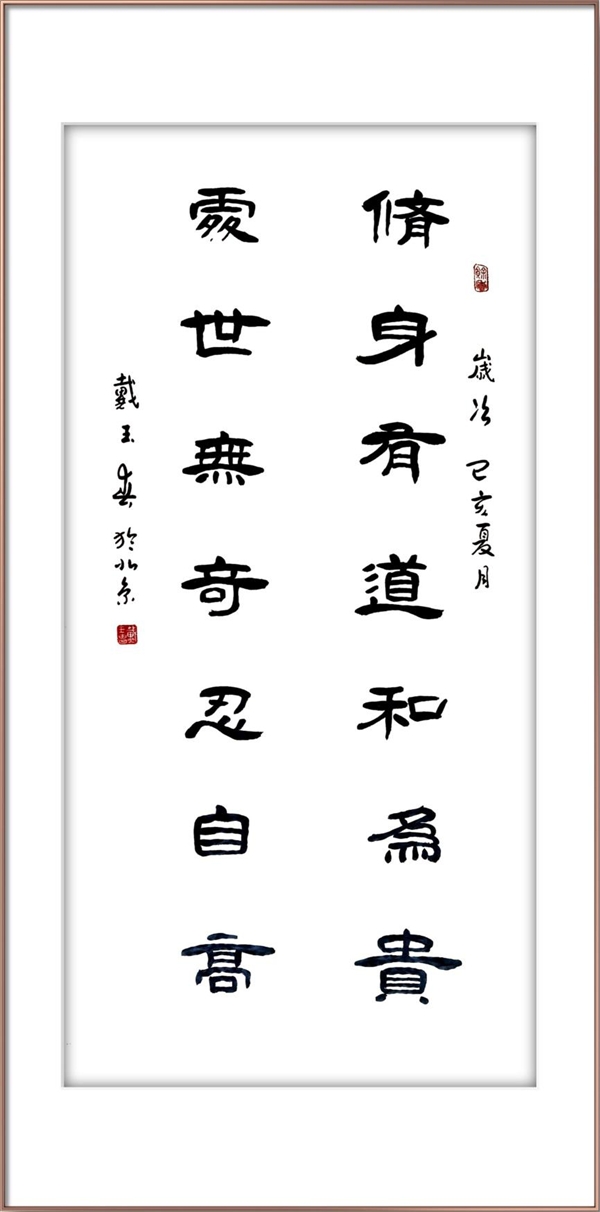 歲次己亥夏月
脩身有道和為貴
處世無奇忍自高
戴玉 於北京